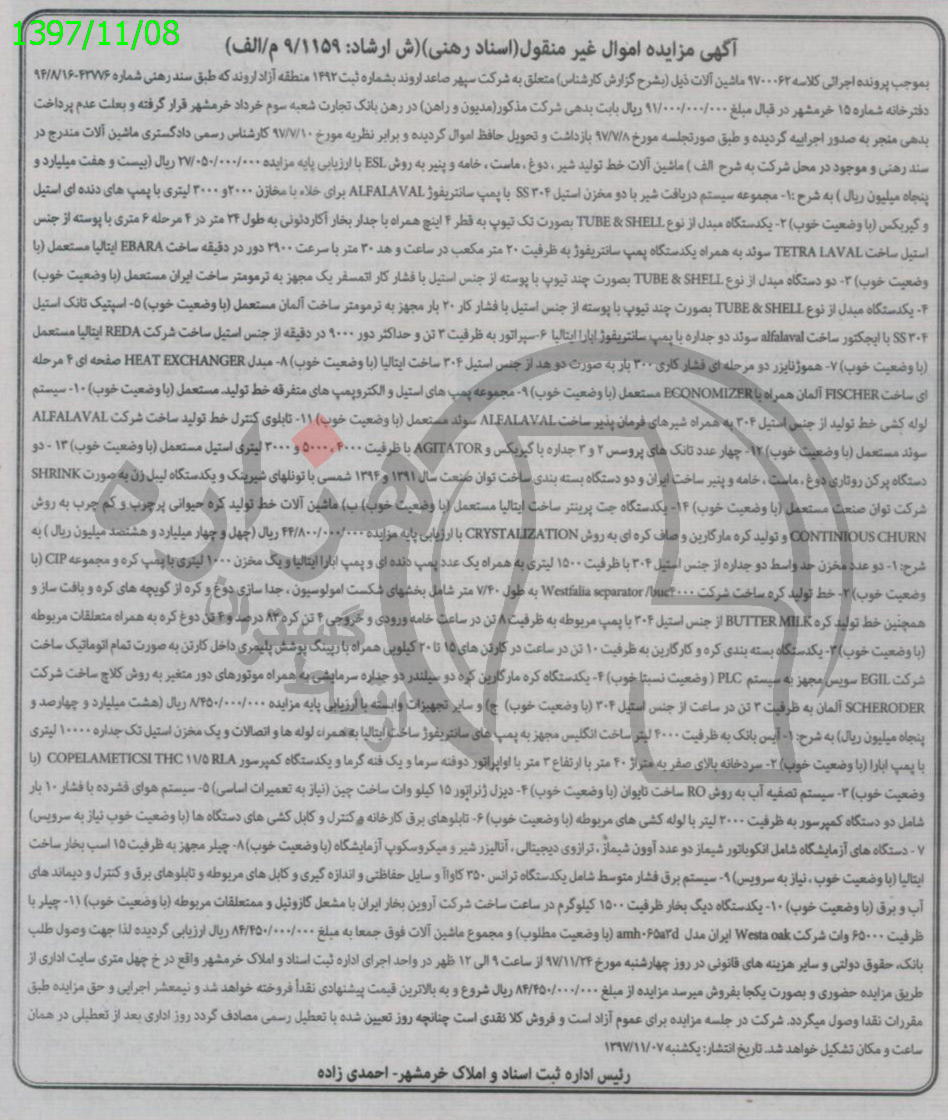 1397/11/08
آگهی مزایده اموال غیر منقول(اسناد رهنی)(ش ارشاد: ۹/۱۱۵۹ م/الف)
بموجب پرونده اجرائی کلاسه ۹۷۰۰۰۶۲ ماشین آلات ذیل (بشرح گزارش کارشناس) متعلق به شرکت سپهر صاعد اروند بشماره ثبت ۱۴۹۲ منطقه آزاد اروند که طبق سند رهنی شماره ۴۳۷۷۶-۹۴/۸/۱۶
دفترخانه شماره ۱۵ خرمشهر در قبال مبلغ ۹۱/۰۰۰/۰۰۰/۰۰۰ ریال بابت بدهی شرکت مذکور(مدیون و راهن) در رهن بانک تجارت شعبه سوم خرداد خرمشهر قرار گرفته و بعلت عدم پرداخت
بدهی منجر به صدور اجراییه گردیده و طبق صورتجلسه مورخ ۹۷/۷/۸ بازداشت و تحویل حافظ اموال گردیده و برابر نظریه مورخ ۹۷/۷/۱۰ کارشناس رسمی دادگستری ماشین آلات مندرج در
سند رهنی و موجود در محل شرکت به شرح الف ) ماشین آلات خط تولید شیر ، دوغ ، ماست ، خامه و پنیر به روش ESL با ارزیابی پایه مزایده ۲۷/۰۵۰/۰۰۰/۰۰۰ ریال (بیست و هفت میلیارد و
پنجاه میلیون ریال ) به شرح :۱- مجموعه سیستم دریافت شیر با دو مخزن استیل ۳۰۴ SS با پمپ سانتریفوژ ALFALAVAL برای خلاء با مخازن ۲۰۰۰و ۳۰۰۰ لیتری با پمپ های دنده ای استیل
و گیربکس (با وضعیت خوب) ۲- یکدستگاه مبدل از نوع TUBE & SHELL بصورت تک تیوپ به قطر ۴ اینچ همراه با جدار بخار آکاردئونی به طول ۲۴ متر در ۴ مرحله ۶ متری با پوسته از جنس
استیل ساخت TETRA LAVAL سوئد به همراه یکدستگاه پمپ سانتریفوژ به ظرفیت ۲۰ متر مکعب در ساعت و هد ۳۰ متر با سرعت ۲۹۰۰ دور در دقیقه ساخت EBARA ایتالیا مستعمل (با
وضعیت خوب) ۳- دو دستگاه مبدل از نوع TUBE & SHELL بصورت چند تیوپ با پوسته از جنس استیل با فشار کار اتمسفر یک مجهز به ترمومتر ساخت ایران مستعمل (با وضعیت خوب)
۴- یکدستگاه مبدل از نوع TUBE & SHELL بصورت چند تیوپ با پوسته از جنس استیل با فشار کار ۲۰ بار مجهز به ترمومتر ساخت آلمان مستعمل (با وضعیت خوب) ۵- اسپتیک تانک استیل
۳۰۴ SS با ایجکتور ساخت alfalaval سوئد دو جداره با پمپ سانتریفوژ ابارا ایتالیا ۶-سپراتور به ظرفیت ۳ تن و حداکثر دور ۹۰۰۰ در دقیقه از جنس استیل ساخت شرکت REDA ایتالیا مستعمل
(با وضعیت خوب) ۷- هموژنایزر دو مرحله ای فشار کاری ۳۰۰ بار به صورت دو هد از جنس استیل ۳۰۴ ساخت ایتالیا (با وضعیت خوب) ۸- مبدل HEAT EXCHANGER صفحه ای ۴ مرحله
ای ساخت FISCHER آلمان همراه با ECONOMIZER مستعمل (با وضعیت خوب) ۹- مجموعه پمپ های استیل و الکتروپمپ های متفرقه خط تولید. مستعمل (با وضعیت خوب) ۱۰- سیستم
لوله کشی خط تولید از جنس استیل ۳۰۴ به همراه شیرهای فرمان پذیر ساخت ALFALAVAL سوئد مستعمل (با وضعیت خوب) ۱۱- تابلوی کنترل خط تولید ساخت شرکت ALFALAVAL
سوئد مستعمل (با وضعیت خوب) ۱۲- چهار عدد تانک های پروسس ۲ و ۳ جداره با گیربکس و AGITATOR با ظرفیت ۴۰۰۰ ، ۵۰۰۰ و ۳۰۰۰ لیتری استیل مستعمل (با وضعیت خوب) ۱۳ - دو
دستگاه پرکن روتاری دوغ ، ماست ، خامه و پنیر ساخت ایران و دو دستگاه بسته بندی ساخت توان صنعت سال ۱۳۹۱ و ۱۳۹۴ شمسی با تونلهای شیرینک و یکدستگاه لیبل زن به صورت SHRINK
شرکت توان صنعت مستعمل (با وضعیت خوب) ۱۴- یکدستگاه جت پرینتر ساخت ایتالیا مستعمل (با وضعیت خوب) ب) ماشین آلات خط تولید کره حیوانی پرچرب و کم چرب به روش
CONTINIOUS CHURN و تولید کره مارگارین و صاف کره ای به روش CRYSTALIZATION با ارزیابی پایه مزایده ۴۴/۸۰۰/۰۰۰/۰۰۰ ریال (چهل و چهار میلیارد و هشتصد میلیون ریال ) به
شرح: ۱- دو عدد مخزن حد واسط دو جداره از جنس استیل ۳۰۴ با ظرفیت ۱۵۰۰ لیتری به همراه یک عدد پمپ دنده ای و پمپ ابارا ایتالیا و یک مخزن ۱۰۰۰ لیتری با پمپ کره و مجموعه CIP (با
وضعیت خوب) ۲- خط تولید کره ساخت شرکت Westfalia separator /buc۴۰۰۰ به طول ۷/۴۰ متر شامل بخشهای شکست امولوسیون ، جدا سازی دوغ و کره از گویچه های کره و بافت ساز و
همچنین خط تولید کره BUTTER MILK از جنس استیل ۳۰۴ با پمپ مربوطه به ظرفیت ۸ تن در ساعت خامه ورودی و خروجی ۴ تن کره ۸۳ درصد و ۴ تن دوغ کره به همراه متعلقات مربوطه
(با وضعیت خوب) ۳- یکدستگاه بسته بندی کره و کارگارین به ظرفیت ۱۰ تن در ساعت در کارتن های ۱۵ تا ۲۰ کیلویی همراه با رپینگ پوشش پلیمری داخل کارتن به صورت تمام اتوماتیک ساخت
شرکت EGIL سویس مجهز به سیستم PLC ( وضعیت نسبتا خوب) ۴- یکدستگاه کره مارگارین کره دو سیلندر دو جداره سرمایشی به همراه موتورهای دور متغیر به روش کلاچ ساخت شرکت
SCHERODER آلمان به ظرفیت ۳ تن در ساعت از جنس استیل ۳۰۴ (با وضعیت خوب) ج) و سایر تجهیزات وابسته با ارزیابی پایه مزایده ۸/۴۵۰/۰۰۰/۰۰۰ ریال (هشت میلیارد و چهارصد و
پنجاه میلیون ریال) به شرح: ۱- آیس بانک به ظرفیت ۴۰۰۰ لیتر ساخت انگلیس مجهز به پمپ های سانتریفوژ ساخت ایتالیا به همراه لوله ها و اتصالات و یک مخزن استیل تک جداره ۱۰۰۰۰ لیتری
با پمپ ابارا (با وضعیت خوب) ۲- سردخانه بالای صفر به متراژ ۴۰ متر با ارتفاع ۳ متر با اواپراتور دوفنه سرما و یک فنه گرما و یکدستگاه کمپرسور COPELAMETICSI THC ۱۱/۵ RLA (با
وضعیت خوب) ۳- سیستم تصفیه آب به روش RO ساخت تایوان (با وضعیت خوب) ۴- دیزل ژنراتور ۱۵ کیلو وات ساخت چین (نیاز به تعمیرات اساسی) ۵- سیستم هوای فشرده با فشار ۱۰ بار
شامل دو دستگاه کمپرسور به ظرفیت ۲۰۰۰ لیتر با لوله کشی های مربوطه (با وضعیت خوب) ۶- تابلوهای برق کارخانه و کنترل و کابل کشی های دستگاه ها (با وضعیت خوب نیاز به سرویس)
۷ - دستگاه های آزمایشگاه شامل انکوباتور شیماز دو عدد آوون شیماز ، ترازوی دیجیتالی ، آنالیزر شیر و میکروسکوپ آزمایشگاه (با وضعیت خوب) ۸- چیلر مجهز به ظرفیت ۱۵ اسب بخار ساخت
ایتالیا (با وضعیت خوب ، نیاز به سرویس) ۹- سیستم برق فشار متوسط شامل یکدستگاه ترانس ۳۵۰ کاوآ و سایل حفاظتی و اندازه گیری و کابل های مربوطه و تابلوهای برق و کنترل و دیماند های
آب و برق (با وضعیت خوب) ۱۰- یکدستگاه دیگ بخار ظرفیت ۱۵۰۰ کیلوگرم در ساعت ساخت شرکت آروین بخار ایران با مشعل گازوئیل و ممتعلقات مربوطه (با وضعیت خوب) ۱۱- چیلر با
ظرفیت ۶۵۰۰۰ وات شرکت Westa oak ایران مدل amh۰۶۵a۳d (با وضعیت مطلوب) و مجموع ماشین آلات فوق جمعا به مبلغ ۸۴/۴۵۰/۰۰۰/۰۰۰ ریال ارزیابی گردیده لذا جهت وصول طلب
بانک، حقوق دولتی و سایر هزینه های قانونی در روز چهارشنبه مورخ ۹۷/۱۱/۲۴ از ساعت ۹ الی ۱۲ ظهر در واحد اجرای اداره ثبت اسناد و املاک خرمشهر واقع در خ چهل متری سایت اداری از
طریق مزایده حضوری و بصورت یکجا بفروش میرسد مزایده از مبلغ ۸۴/۴۵۰/۰۰۰/۰۰۰ ریال شروع و به بالاترین قیمت پیشنهادی نقداً فروخته خواهد شد و نیمعشر اجرایی و حق مزایده طبق
مقررات نقدا وصول میگردد. شرکت در جلسه مزایده برای عموم آزاد است و فروش کلا نقدی است چنانچه روز تعیین شده با تعطیل رسمی مصادف گردد روز اداری بعد از تعطیلی در همان
ساعت و مکان تشکیل خواهد شد. تاریخ انتشار: یکشنبه ۱۳۹۷/۱۱/۰۷
رئیس اداره ثبت اسناد و املاک خرمشهر- احمدی زاده